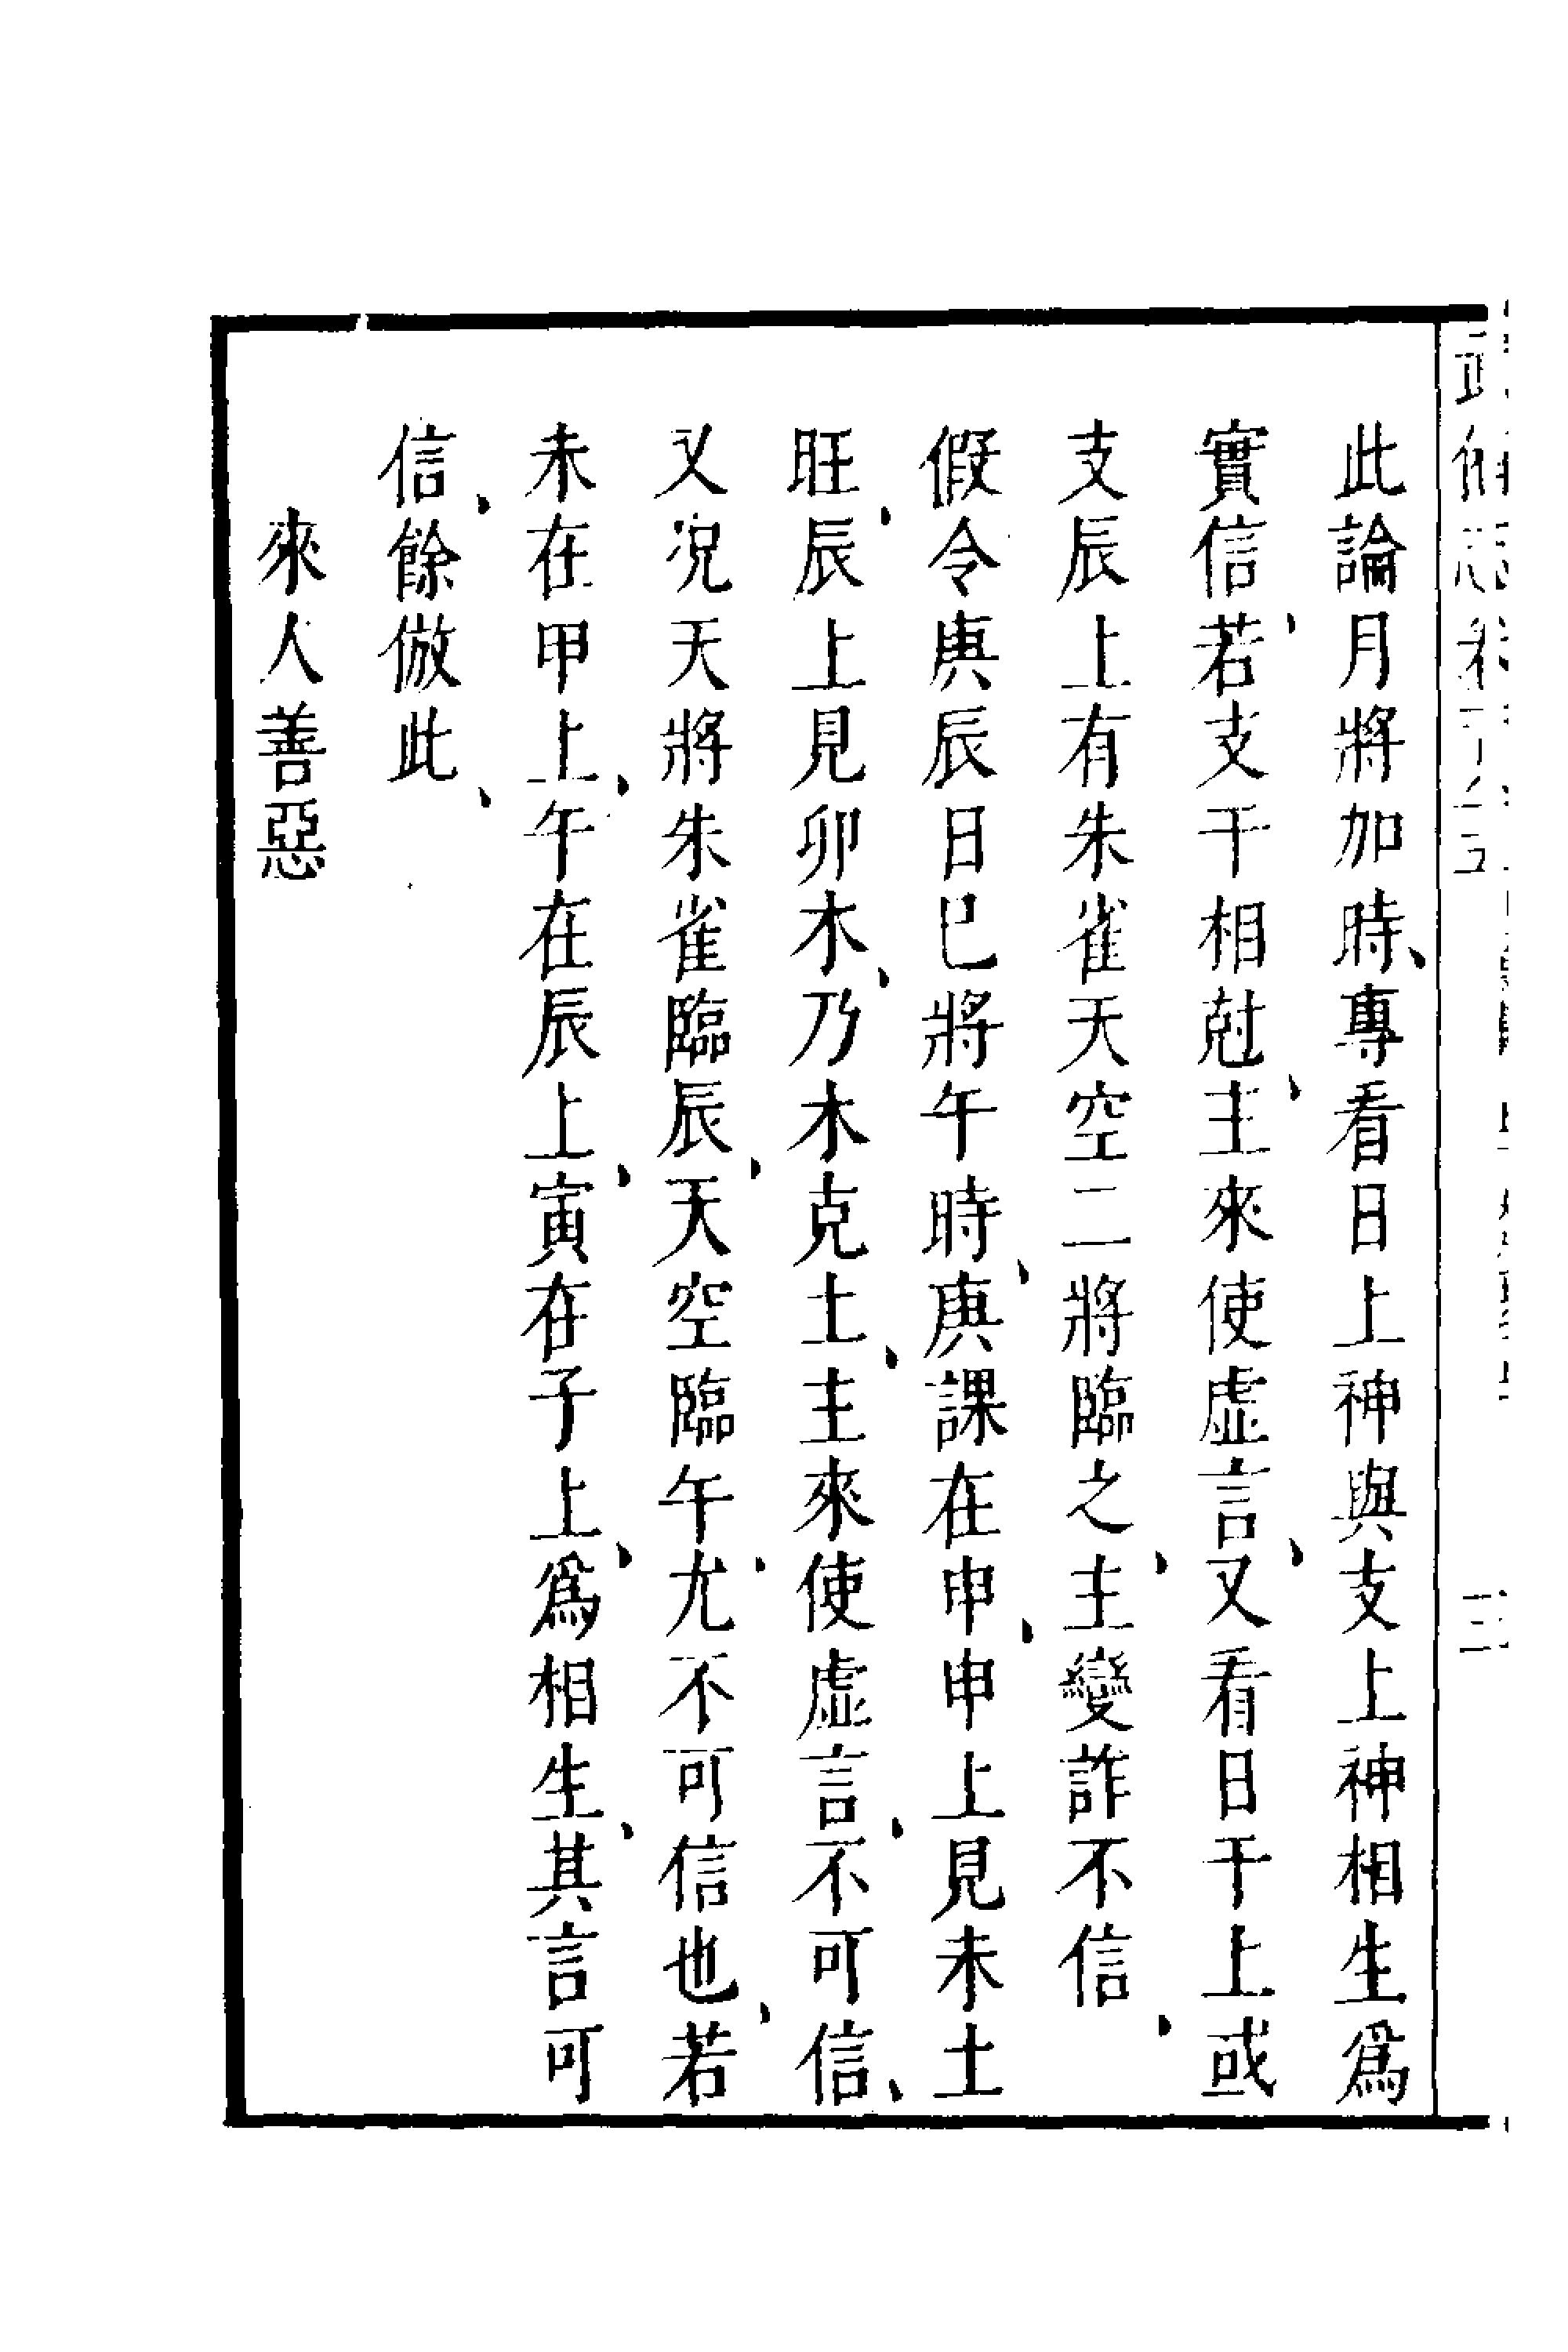 此論月將加時、專看日上神與支上神相生爲
實信、若支干相尅、主來使虛言、又看日干上或
支辰上有朱雀天空二將臨之、主變詐不信、
假令庚辰日巳將午時、庚課在申、申上見未土
旺、辰上見卯木、乃木克土、主來使虛言、不可信、
又况天將朱雀臨辰、天空臨午、尤不可信也、若
未在甲上、午在辰上、寅在子上、爲相生、其言可
信、餘倣此、
來人善惡